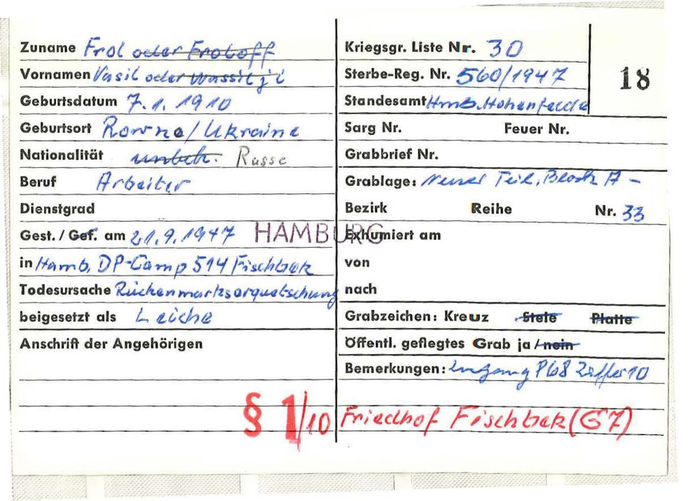 Zuname Frol oder Froloff
Vornamen Vasil oder Wassilji
Geburtsdatum 7.1.1910
Geburtsort Rowno/Ukraine
Nationalität unbek. Russe
Beruf Arbeiter
Dienstgrad
Gest./Gef. am 21.9.1947 HAMBURG
in Hamb. DP-Camp 514 Fischbek
Todesursache Rückenmarksquetschung
beigesetzt als Leiche
Anschrift der Angehörigen
§ 1/10
Kriegsgr. Liste Nr. 30
Sterbe-Reg. Nr. 560/1947
18
Standesamt Hmb. Hohenfelde
Sarg Nr. Feuer Nr.
Grabbrief Nr.
Grablage: Neuer Teil, Block A -
Bezirk Reihe Nr. 33
Exhumiert am
von
nach
Grabzeichen: Kreuz Stele Platte
Öffentl. gepflegtes Grab ja/nein
Bemerkungen: Zugang 1968 Ziffer 10
Friedhof Fischbek (G7)